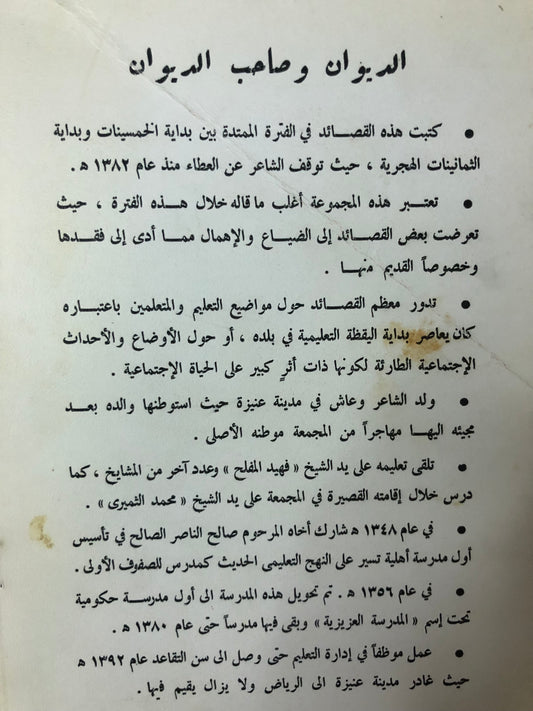 الديوان وصاحب الديوان
● كتبت هذه القصائد في الفترة الممتدة بين بداية الخمسينات وبداية
الثمانينات الهجرية ، حيث توقف الشاعر عن العطاء منذ عام ١٣٨٢ ه .
● تعتبر هذه المجموعة أغلب ما قاله خلال هذه الفترة ، حيث
تعرضت بعض القصائد إلى الضياع والإهمال مما أدى إلى فقدها
وخصوصاً القديم منها .
● تدور معظم القصائد حول مواضيع التعليم والمتعلمين باعتباره
كان يعاصر بداية اليقظة التعليمية في بلده ، أو حول الأوضاع والأحداث
الإجتماعية الطارئة لكونها ذات أثرٍ كبير على الحياة الإجتماعية .
● ولد الشاعر وعاش في مدينة عنيزة حيث استوطنها والده بعد
مجيئه اليها مهاجراً من المجمعة موطنه الأصلى .
● تلقى تعليمه على يد الشيخ « فهيد المفلح » وعدد آخر من المشايخ ، كما
درس خلال إقامته القصيرة في المجمعة على يد الشيخ « محمد الثميرى » .
● في عام ١٣٤٨ ه شارك أخاه المرحوم صالح الناصر الصالح في تأسيس
أول مدرسة أهلية تسير على النهج التعليمى الحديث كمدرس للصفوف الأولى .
● في عام ١٣٥٦ ه . تم تحويل هذه المدرسة الى أول مدرسة حكومية
تحت إسم « المدرسة العزيزية » وبقى فيها مدرساً حتى عام ١٣٨٠ ه .
● عمل موظفاً في إدارة التعليم حتى وصل الى سن التقاعد عام ١٣٩٢ ه .
حيث غادر مدينة عنيزة الى الرياض ولا يزال يقيم فيها .